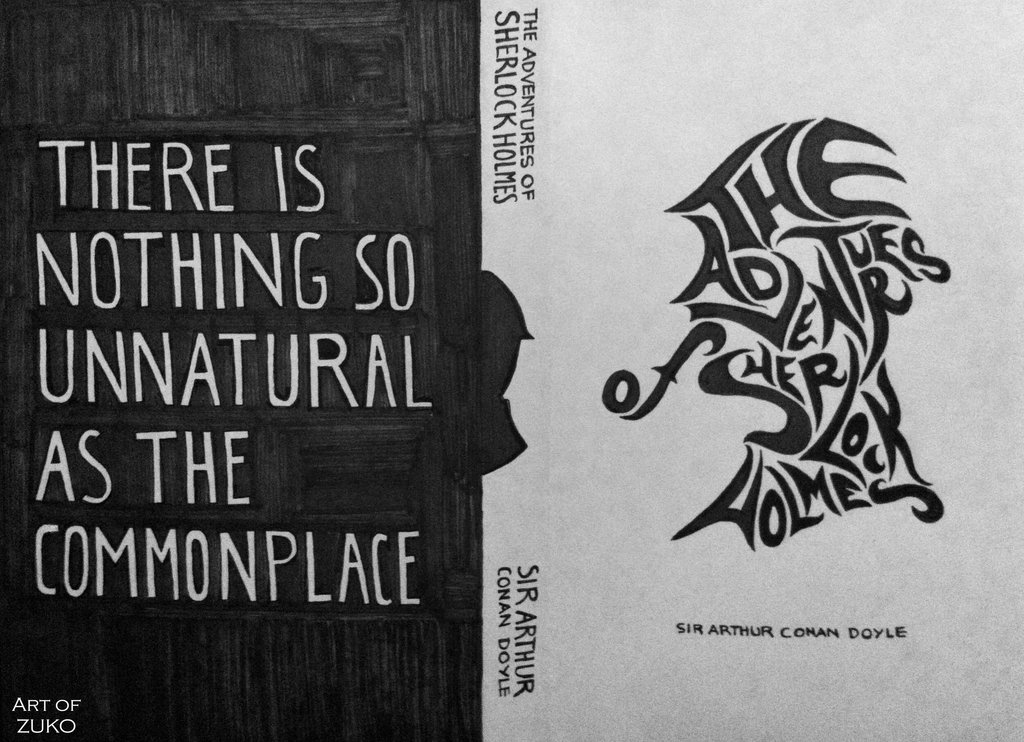 THERE IS
NOTHING SO
UNNATURAL
AS THE
COMMONPLACE
ART OF
ZUKO
THE ADVENTURES OF
SHERLOCK HOLMES
SIR ARTHUR
CONAN DOYLE
THE
ADVENTURES
OF SHERLOCK
HOLMES
SIR ARTHUR CONAN DOYLE